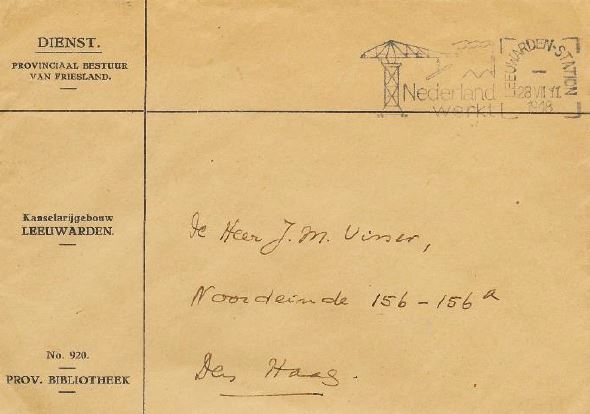 DIENST.
PROVINCIAAL BESTUUR
VAN FRIESLAND.
Nederland
werkt
LEEUWARDEN-STATION
28 VII 11
1948
Kanselarijgebouw
LEEUWARDEN.
De Heer J. M. Visser,
Noordeinde 156 - 156a
Den Haag.
No. 920.
PROV. BIBLIOTHEEK